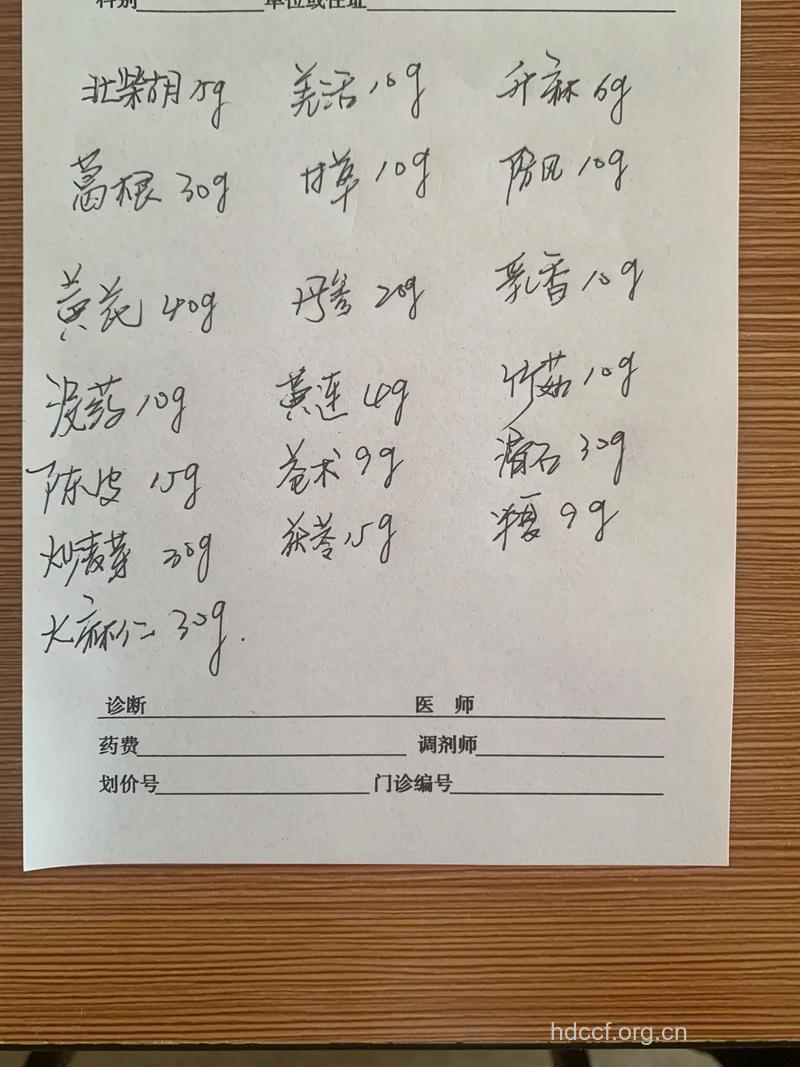 科别 单位或住址
北柴胡15g 羌活10g 升麻6g
葛根30g 甘草10g 防风10g
黄芪40g 丹参20g 乳香10g
没药10g 黄连4g 竹茹10g
陈皮15g 苍术9g 滑石30g
炒麦芽30g 茯苓15g 半夏9g
火麻仁30g.
诊断 医师
药费 调剂师
划价号 门诊编号
hdccf.org.cn